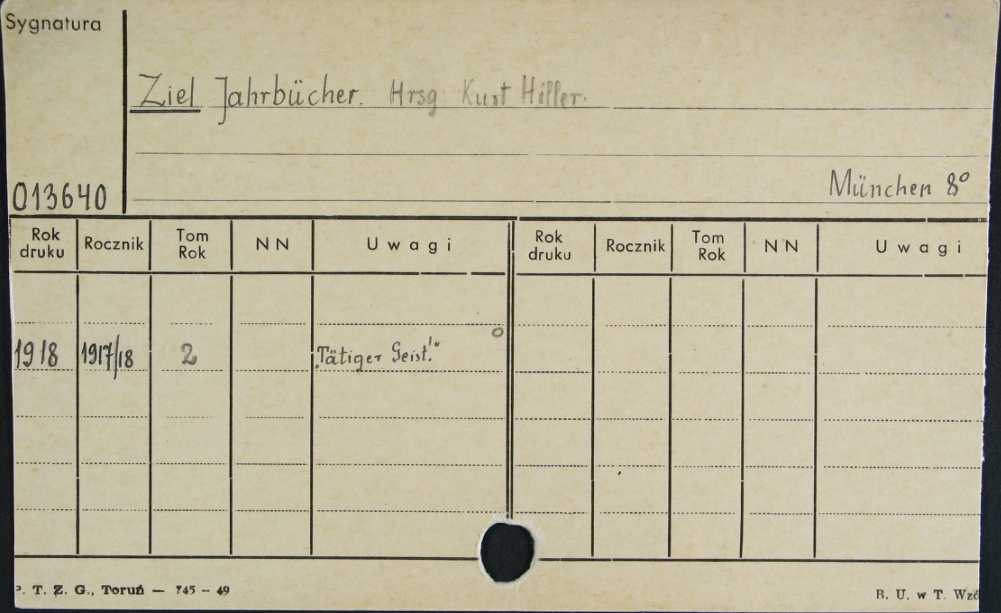 Sygnatura
Ziel Jahrbücher. Hrsg Kurt Hiller.
013640
München 8°
Rok druku Rocznik Tom Rok NN Uwagi Rok druku Rocznik Tom Rok NN Uwagi
1918 1917/18 2 „Tätiger Geist!"
P. T. Z. G., Toruń — 745 - 49
B. U. w T. Wzó